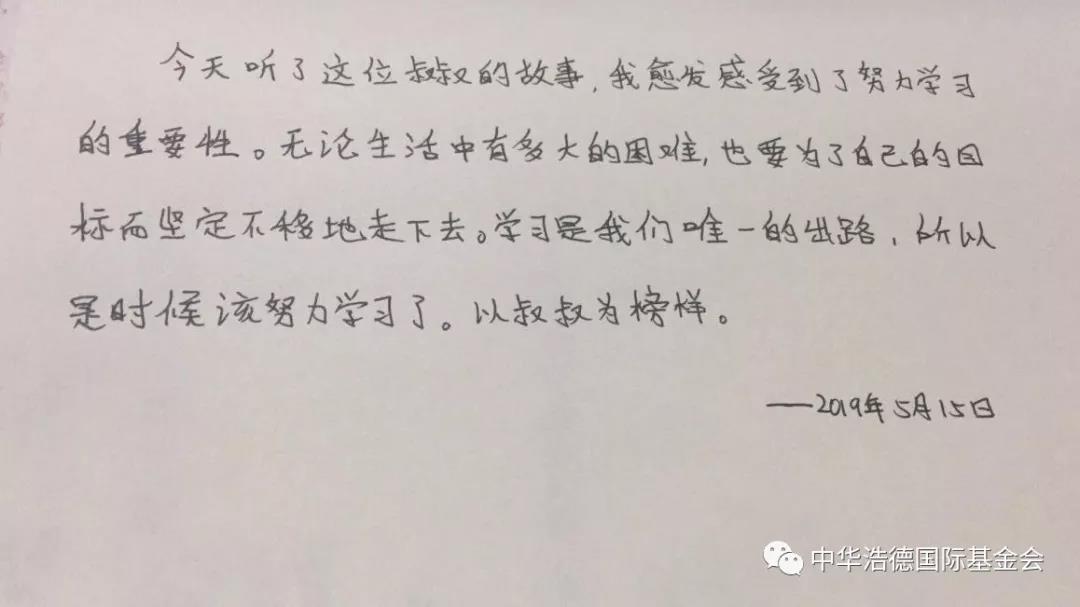 今天听了这位叔叔的故事,我愈发感受到了努力学习
的重要性。无论生活中有多大的困难,也要为了自己的目
标而坚定不移地走下去。学习是我们唯一的出路，所以
是时候该努力学习了。以叔叔为榜样。
——2019年5月15日
中华浩德国际基金会